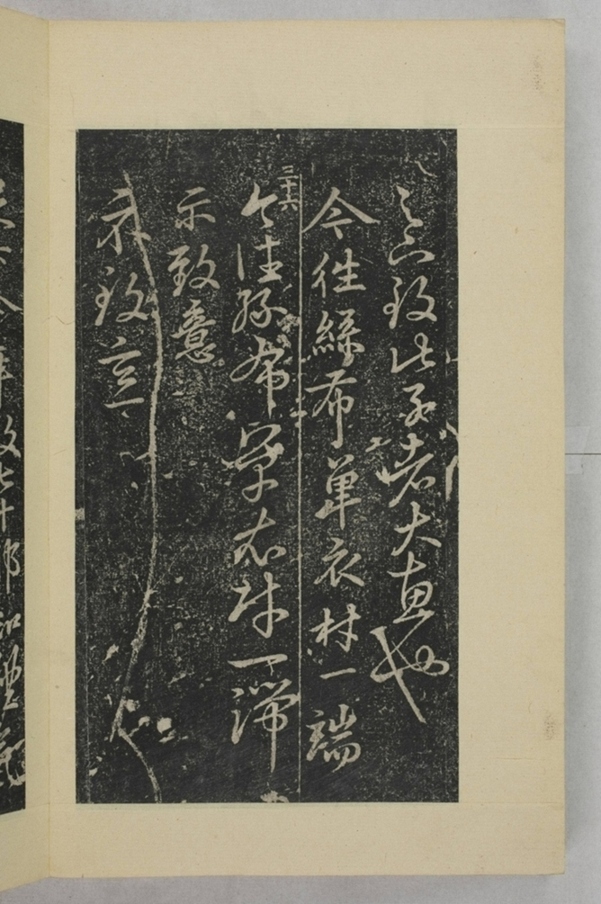 足下致此子者大惠也
今往絲布單衣材一端
三十六
今往絲布單衣財一端
示致意
示致意